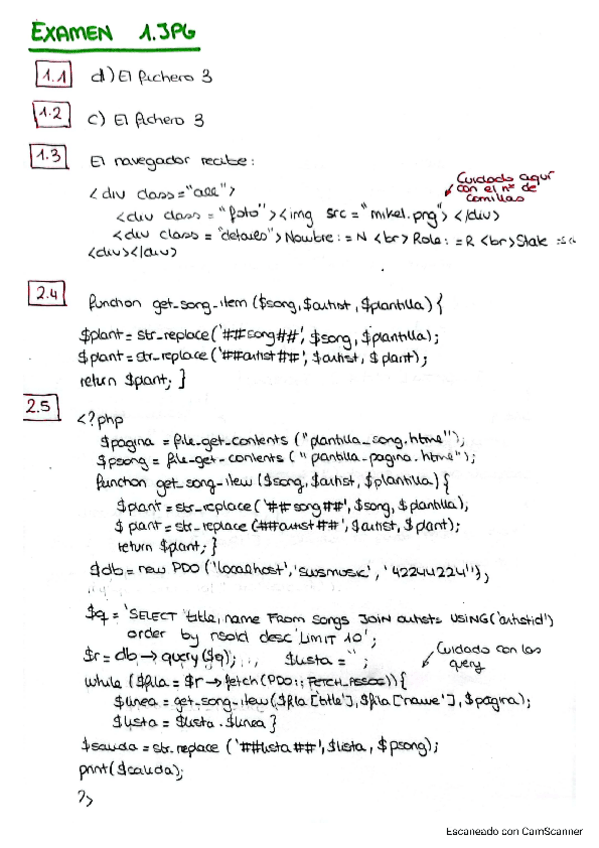 EXAMEN 1.JPG
1.1 d) El fichero 3
1.2 c) El fichero 3
1.3 El navegador recibe:
Cuidado aquí
con el nº de
comillas
<div class="all">
<div class="foto"><img src="mikel.png"></div>
<div class="detalles">Nombre:=N<br>Role:=R<br>Stake
<div></div>
2.4 function get_song_item($song,$autist,$plantilla){
$plant=str_replace('##song##',$song,$plantilla);
$plant=str_replace('##autist##',$autist,$plant);
return $plant;}
2.5 <?php
$pagina = file_get_contents("plantilla_song.html");
$psong = file_get_contents("plantilla-pagina.html");
function get_song_item($song,$autist,$plantilla){
$plant=str_replace('##song##',$song,$plantilla),
$plant=str_replace(##autist##',$autist,$plant);
return $plant;}
$db=new PDO('localhost','swsmusic','42244224');
$q='SELECT title,name From songs JOIN autists USING('autistid')
order by nsold desc LIMIT 10';
$r=db->query($q); $lista='';
Cuidado con las
query
while($fila=$r->fetch(PDO::FETCH_ASSOC)){
$linea=get_song_item($fila['title'],$fila['name'],$pagina);
$lista=$lista.$linea}
$salida=str_replace('##lista##',$lista,$psong);
print($salida);
?>
Escaneado con CamScanner